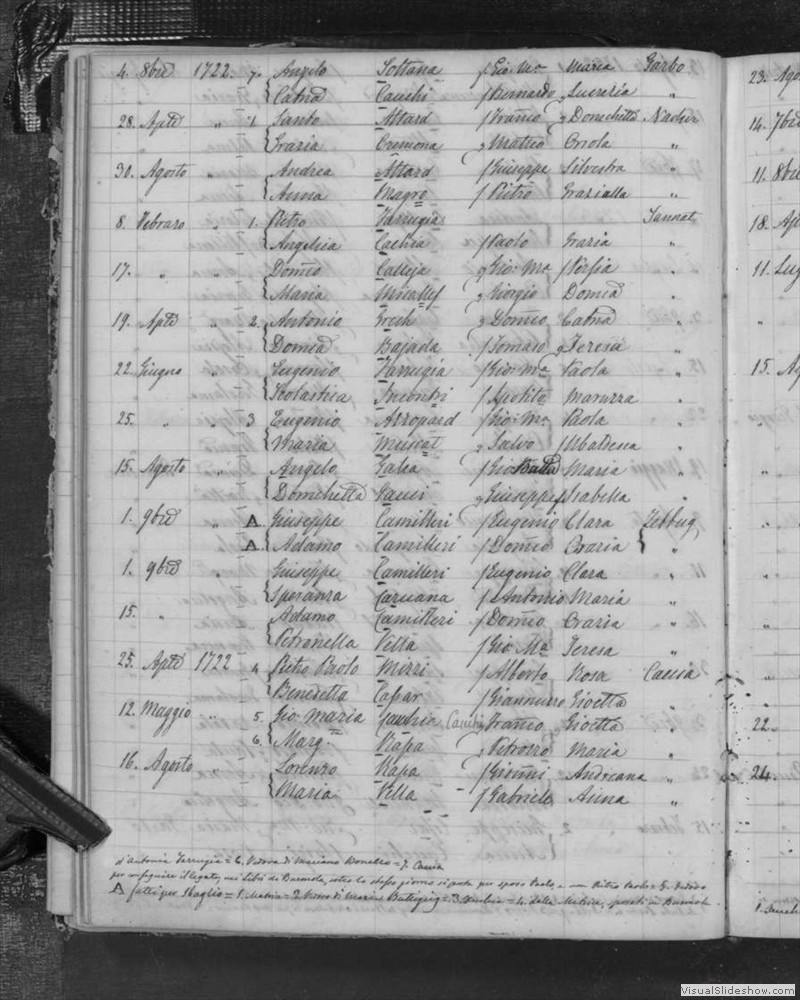 4. 8bre 1722. 7. Angelo Soltana f Gio: Ma Maria Garbo
Catna Cauchi f Bernardo Lucreria "
28. Aple " 1. Santo Attard f Franco " Domchetta Nadur
Grazia Cremona " Matteo Oriola "
30. Agosto " Andrea Attard f Giuseppe Silvestra "
Anna Magro f Pietro Grazialla "
8. Febraro " 1. Pietro Farrugia Sannat
Angelica Cachia f Paolo Grazia "
17. " " Domco Calleja Gio: Ma f Porfia "
Maria Micallef Giorgio Domca "
19. Aple " 2. Antonio Grech " Domco Catna "
Domca Bajada f Tomaso " Teresa "
22. Giugno " Eugenio Farrugia f Gio: Ma Paola "
Scolastica Incontri f Ipolito Maruzza "
25. " " 3 Eugenio Axopard f Gio: Ma Paola "
Maria Muscat " Salvo f Ubaldesca "
15. Agosto " Angelo Galea f Gio Batta Maria "
Domchetta Gauci " Giuseppe f Isabella "
1. 9bre " A Giuseppe Camilleri f Eugenio Clara Zebbug
A Adamo Camilleri f Domco Oraria "
1. 9bre " Giuseppe Camilleri f Eugenio Clara "
Speranza Caruana f Antonio Maria "
15. " Adamo Camilleri f Domco Oraria "
Petronella Vella f Gio: Ma Teresa "
25. Aple 1722 4 Pietro Paolo Mizzi f Alberto Rosa Caccia
Benedetta Caspar f Giannuzzo Gioetta "
12. Maggio " 5. Gio: Maria Cauchi Franco Gioetta "
6. Marg. Rapa " Petrozzo Maria "
16. Agosto Lorenzo Rapa f Gioanni Andreana "
Maria Vella - f Gabriele Anna "
d'Antonia Farrugia = 6. Vedova di Mariano Bonello = 7. Caccia
per conseguire il legato, nei Libri di Burmola, sotto lo stesso giorno si porta per sposo Paolo, e non Pietro Paolo = 5. Vedovo
A fatti per Sbaglio = 1. Matrice = 2. Vedovo di Maria Buttigieg = 3 = 4. dalla Matrice, sposati in Burmola
23. Ago
14. 7bre
11. 8bre
18. Ap
11. Lug
"
15. Ag
"
"
"
"
"
"
22.
24.